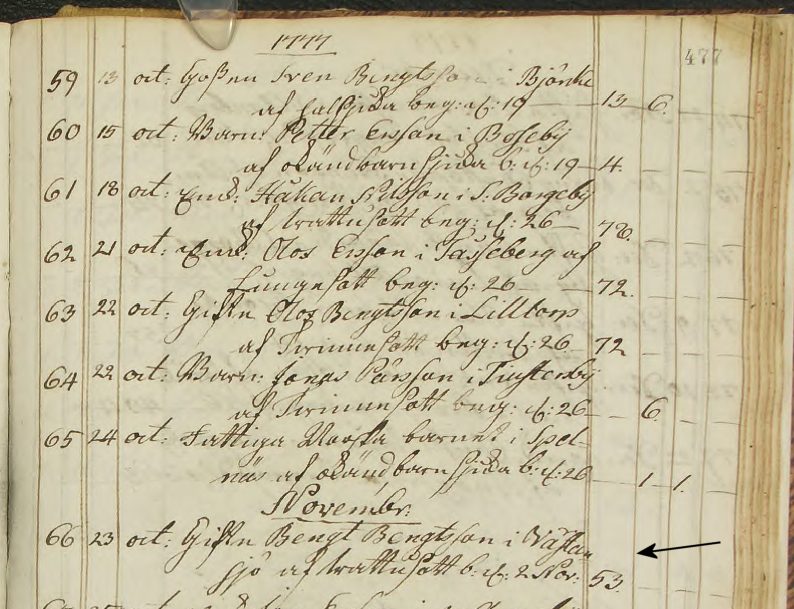 1777
477
59 13 oct: Goßen Sven Bengtsson i Björke
af halssjuka beg: d: 19 13 6.
60 15 oct: Barn: Petter Ersson i Boseby
af okänd barnsjuka b: d: 19 4.
61 18 oct: Enk: Håkan Nilsson i S: Borgeby
af trattusott beg: d: 26 78.
62 21 oct: Enk: Olos Ersson i Tasseberg af
Lungesott beg: d: 26 72.
63 22 oct: Giftn Olos Bengtsson i Lilltors
af Twinnesott beg: d: 26 72
64 22 oct: Barn: Jonas Pärsson i
af Twinnesott beg: d: 26 6.
65 24 oct: Fattiga barnet i Spel-
näs af okänd barnsjuka b: d: 26 1 1.
Novembr:
66 23 oct: Giftn Bengt Bengtsson i Västan
sjö af trattusott b: d: 2 Nov: 53.